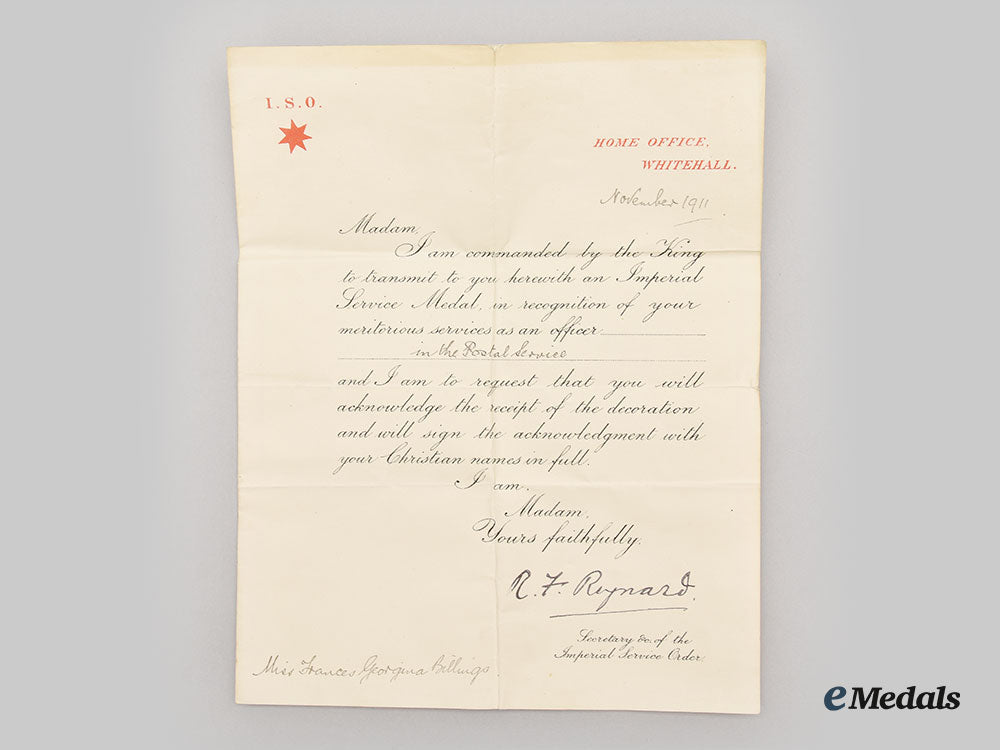 I.S.O.
HOME OFFICE,
WHITEHALL.
November 1911
Madam,
I am commanded by the King
to transmit to you herewith an Imperial
Service Medal, in recognition of your
meritorious services as an officer
in the Postal Service
and I am to request that you will
acknowledge the receipt of the decoration
and will sign the acknowledgment with
your Christian names in full.
I am,
Madam,
Yours faithfully,
R. F. Reynard.
Secretary &c. of the
Imperial Service Order.
Miss Frances Georgina Billings
eMedals